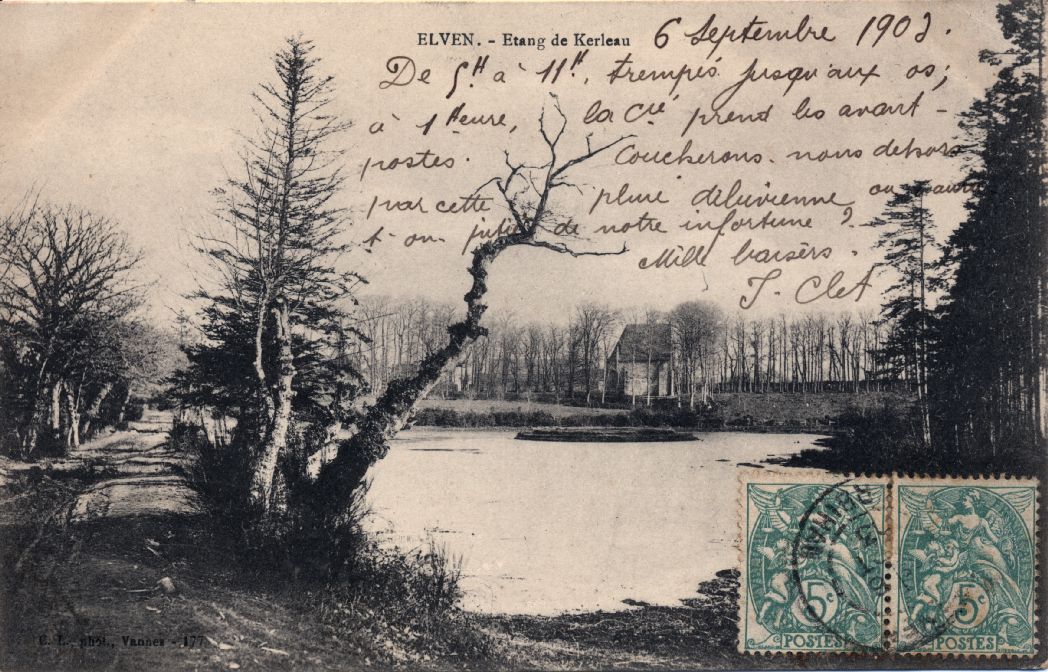 ELVEN. - Etang de Kerleau
6 Septembre 1903.
De 5H à 11H, trempés jusqu'aux os;
à 1 heure, la Cie prend les avant-
postes. Coucherons-nous dehors
par cette pluie déluvienne ou aura
t-on pitié de notre infortune ?
Mille baisers.
J. Clet
5c
POSTES
5c
POSTES
C. L., phot., Vannes - 177